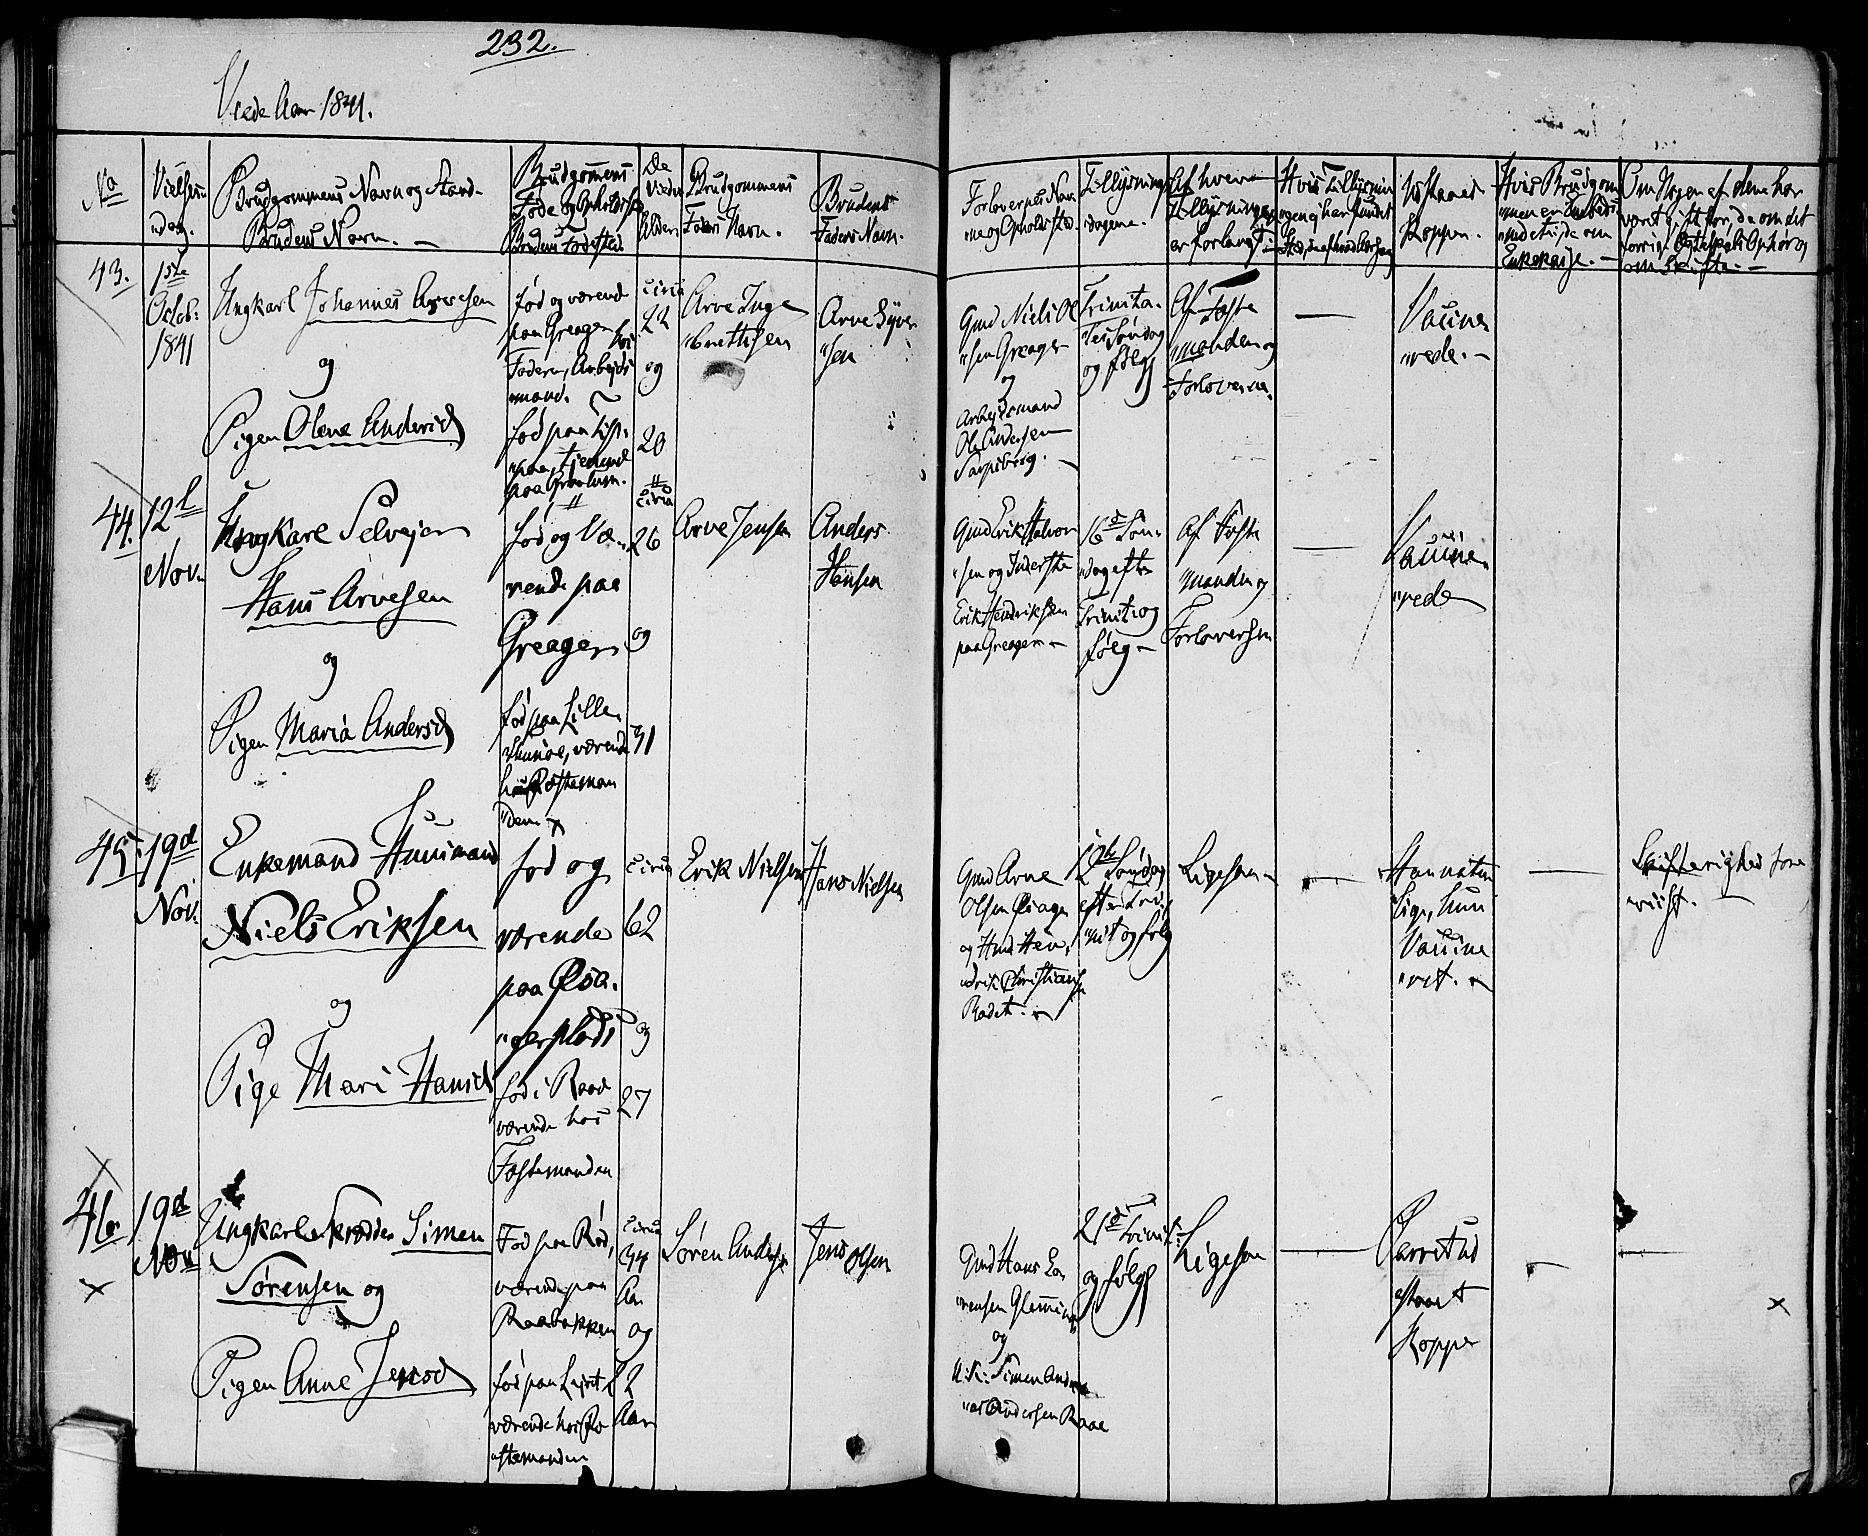 232.
Viede Aar 1841.
No
Vielses-
dag.
Brudgommens Navn og Stand-
Brudens Navn. -
Brudgommens
Føde og Opholdssted
Brudens Fødested
De
Viedes
Alder
Brudgommens
Faders Navn.
Brudens
Faders Navn.
Forlovernes Nav-
ne og Opholdsted.
Tillysnings-
dagene.
Af hvem
Tillysningen
er forlangt
Hvis Tillysnin-
gen ei har fundet
Sted,
Vaccineret
Kopper.
Hvis Brudgom-
men er
med
Enkekasse. -
Om Nogen af dem har
været gift før,
forrige Ægteskabs Ophør og
om Skifte. -
43.
1ste
Octob:
1841
Ungkarl Johannes Arvesen
og
Pigen Olene Andersd
fød og værend
paa Greager hos
Faderen, Arbejds
mand.
fød paa
tjenend
paa Grålum.
circa
22
og
20
Arve Inge
brettsen
Arve Syver
sen
Gmd Niels Ol
sen Greager
og
Arbejdsmand
Ole Andersen
Sarpsborg. -
Trinita-
tes Søndag
og følg
Af Fæste
manden og
Forloverne.
Vaccine
rede. -
44.
12te
Nov.
Ungkarl Selvejer
Hans Arvesen
og
Pigen Maria Andersd
fød og Væ-
rende paa
Greager
fød paa Lille
værende
hos Fæsteman
den
circa
26
og
31
Arve Jensen
Anders
Hansen
Gmd Erik Halvor
sen og Inderste
Erik Hendriksen
paa Greager -
16de Søn-
dag efter
Trinit og
følg -
Af Fæste
manden og
Forloversen
Vaccine
rede
45.
19de
Nov.
Enkemand Huusmand
Niels Eriksen
og
Pige Mari Hansd
fød og
værende
paa Øia-
gerplads
fød i Raad
værende hos
Fæstemanden
circa
62
og
27
Erik Nielsen
Hans Nielsen
Gmd Arne
Olsen
og Hmd Hen-
drik Christiansen
Radet. -
Søndag
efter Tri-
nit og følg
Ligesaa -
Han natur
lige, hun
Vaccine
ret. -
Skifterighed fore
viist. -
46
19de
Nov
Ungkarl Skrædder Simen
Sørensen og
Pigen Anne Jensd
Fød paa Rød,
værende paa
Raabakken
fød paa
værende hos Fæ
stemanden
circa
34
Aar
og
22
Aar
Søren Andersen
Jens Olsen
Gmd Hans Lo
rensen Glemmin
og
Simen Andrea
as Andersen Raae
21de Trinit.
og følg
Ligesaa
Parret ud
staaet
Kopper